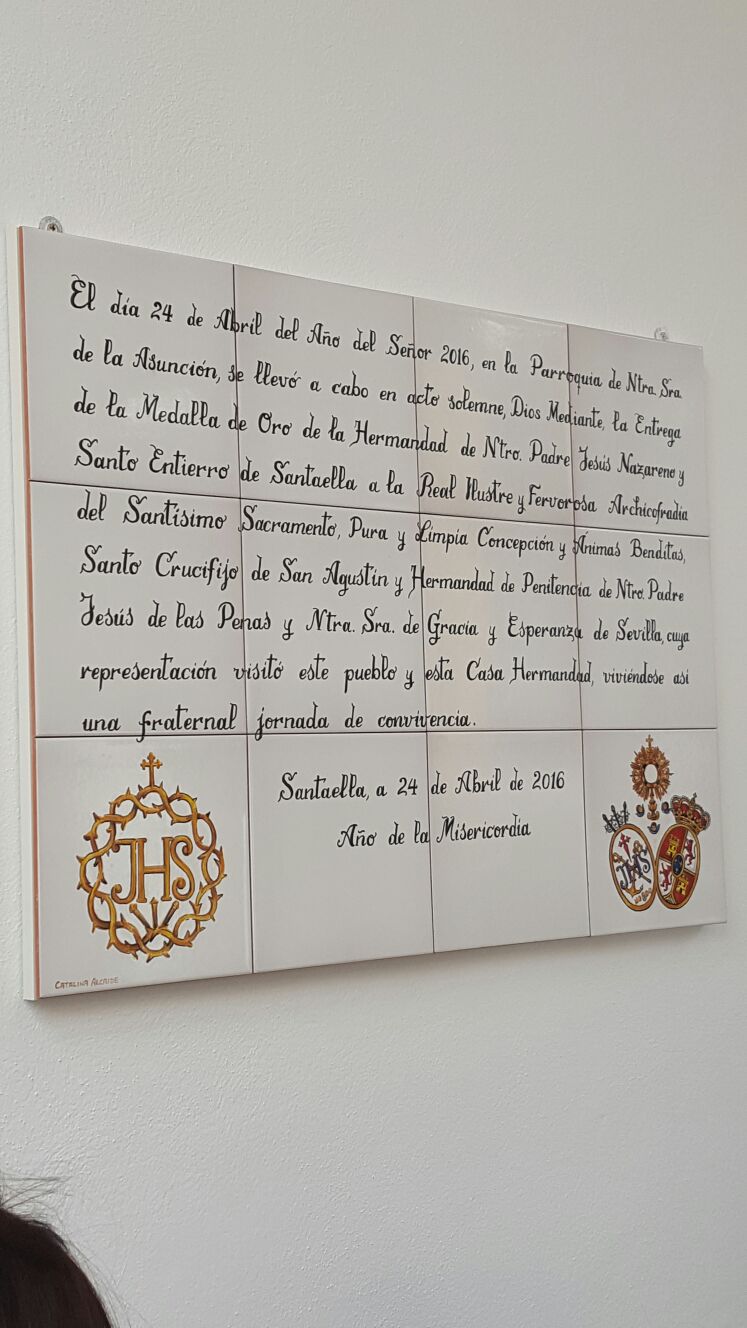 El día 24 de Abril del Año del Señor 2016, en la Parroquia de Ntra. Sra.
de la Asunción, se llevó a cabo en acto solemne, Dios Mediante, la Entrega
de la Medalla de Oro de la Hermandad de Ntro. Padre Jesús Nazareno y
Santo Entierro de Santaella a la Real Ilustre y Fervorosa Archicofradía
del Santísimo Sacramento, Pura y Limpia Concepción y Ánimas Benditas,
Santo Crucifijo de San Agustín y Hermandad de Penitencia de Ntro. Padre
Jesús de las Penas y Ntra. Sra. de Gracia y Esperanza de Sevilla, cuya
representación visitó este pueblo y esta Casa Hermandad, viviéndose así
una fraternal jornada de convivencia.
Santaella, a 24 de Abril de 2016
Año de la Misericordia
JHS
JHS
CATALINA ALCAIDE